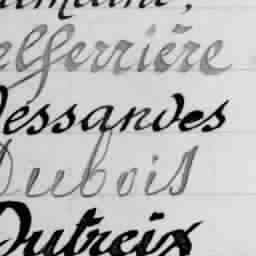 elferrière
Dessandes
Dubois
Dutreix